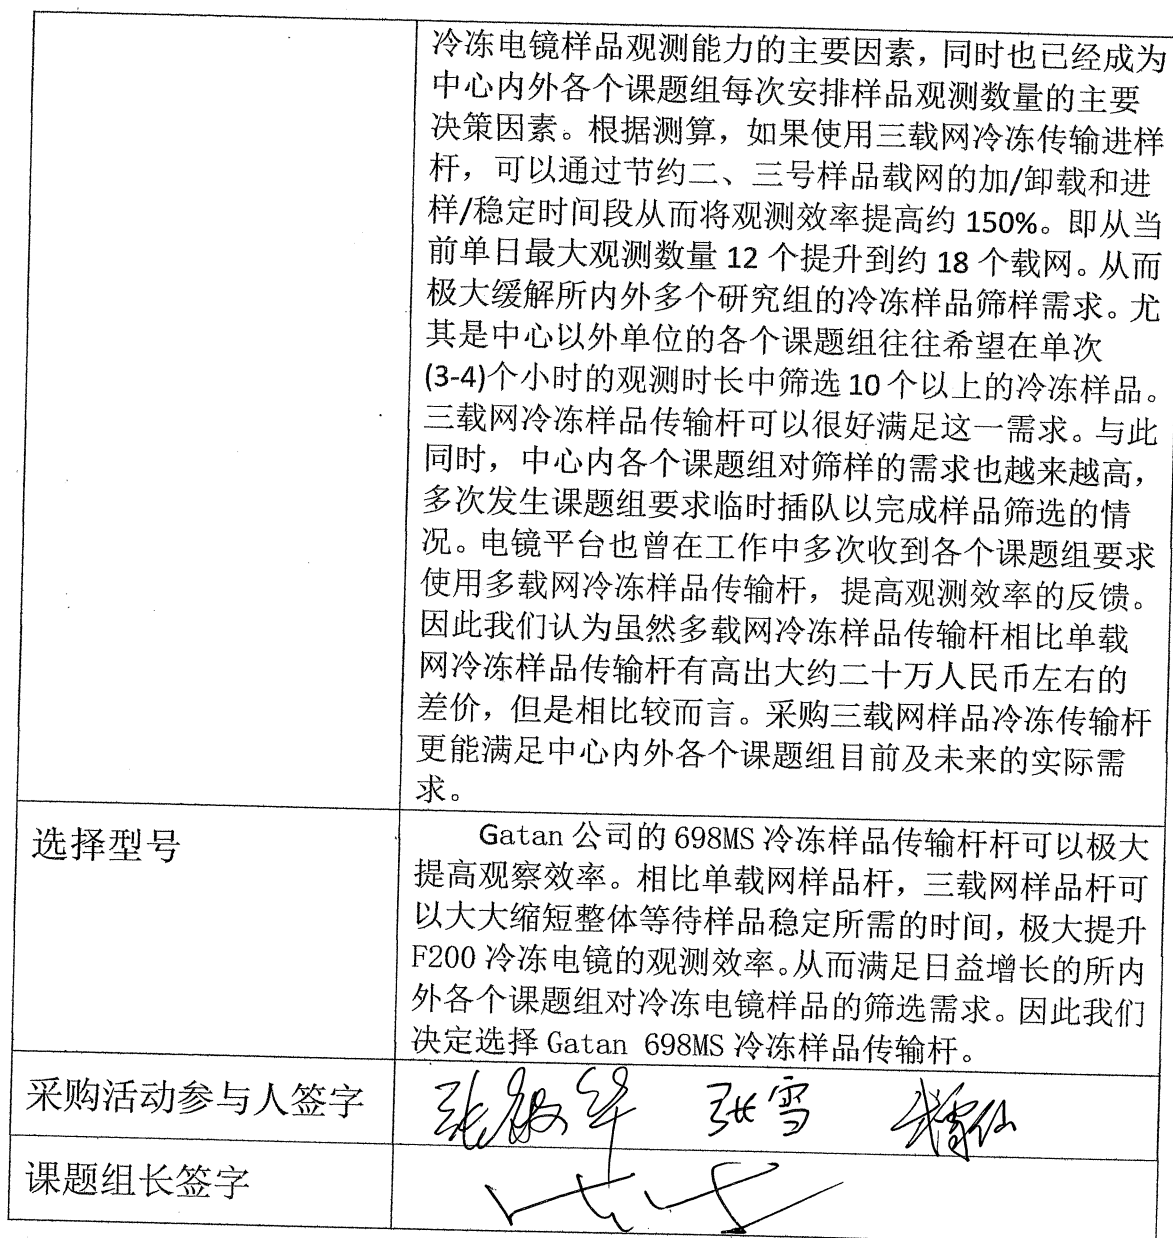 冷冻电镜样品观测能力的主要因素，同时也已经成为
中心内外各个课题组每次安排样品观测数量的主要
决策因素。根据测算，如果使用三载网冷冻传输进样
杆，可以通过节约二、三号样品载网的加/卸载和进
样/稳定时间段从而将观测效率提高约 150%。即从当
前单日最大观测数量 12 个提升到约 18 个载网。从而
极大缓解所内外多个研究组的冷冻样品筛样需求。尤
其是中心以外单位的各个课题组往往希望在单次
(3-4)个小时的观测时长中筛选 10 个以上的冷冻样品。
三载网冷冻样品传输杆可以很好满足这一需求。与此
同时，中心内各个课题组对筛样的需求也越来越高，
多次发生课题组要求临时插队以完成样品筛选的情
况。电镜平台也曾在工作中多次收到各个课题组要求
使用多载网冷冻样品传输杆，提高观测效率的反馈。
因此我们认为虽然多载网冷冻样品传输杆相比单载
网冷冻样品传输杆有高出大约二十万人民币左右的
差价，但是相比较而言。采购三载网样品冷冻传输杆
更能满足中心内外各个课题组目前及未来的实际需
求。
选择型号
Gatan 公司的 698MS 冷冻样品传输杆杆可以极大
提高观察效率。相比单载网样品杆，三载网样品杆可
以大大缩短整体等待样品稳定所需的时间，极大提升
F200 冷冻电镜的观测效率。从而满足日益增长的所内
外各个课题组对冷冻电镜样品的筛选需求。因此我们
决定选择 Gatan 698MS 冷冻样品传输杆。
采购活动参与人签字
张雪
课题组长签字